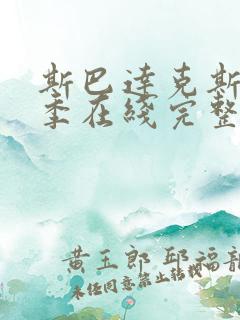 斯巴达克斯
季在线完整
黄玉郎 邱福龍
未经同意禁止转载